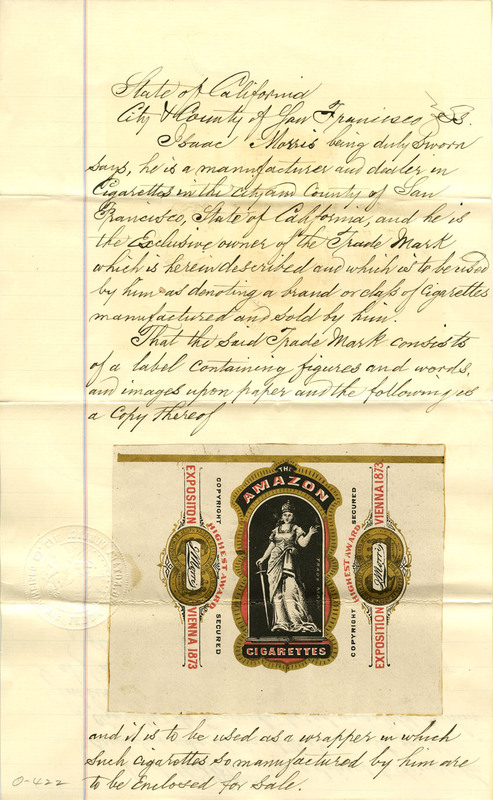 State of California
City & County of San Francisco } SS.
Isaac Morris being duly sworn
says, he is a manufacturer and dealer in
Cigarettes in the city and County of San
Francisco, State of California, and he is
the Exclusive owner of the Trade Mark
which is herein described and which is to be used
by him as denoting a brand or class of Cigarettes
manufactured and sold by him.
That the said Trade Mark consists
of a label containing figures and words,
and images upon paper and the following is
a Copy thereof
THE
AMAZON
CIGARETTES
TRADE MARK
EXPOSITION
VIENNA 1873
COPYRIGHT
SECURED
HIGHEST AWARD
SECURED
COPYRIGHT
HIGHEST AWARD
EXPOSITION
VIENNA 1873
and it is to be used as a wrapper in which
such cigarettes so manufactured by him are
to be Enclosed for sale.
O-422